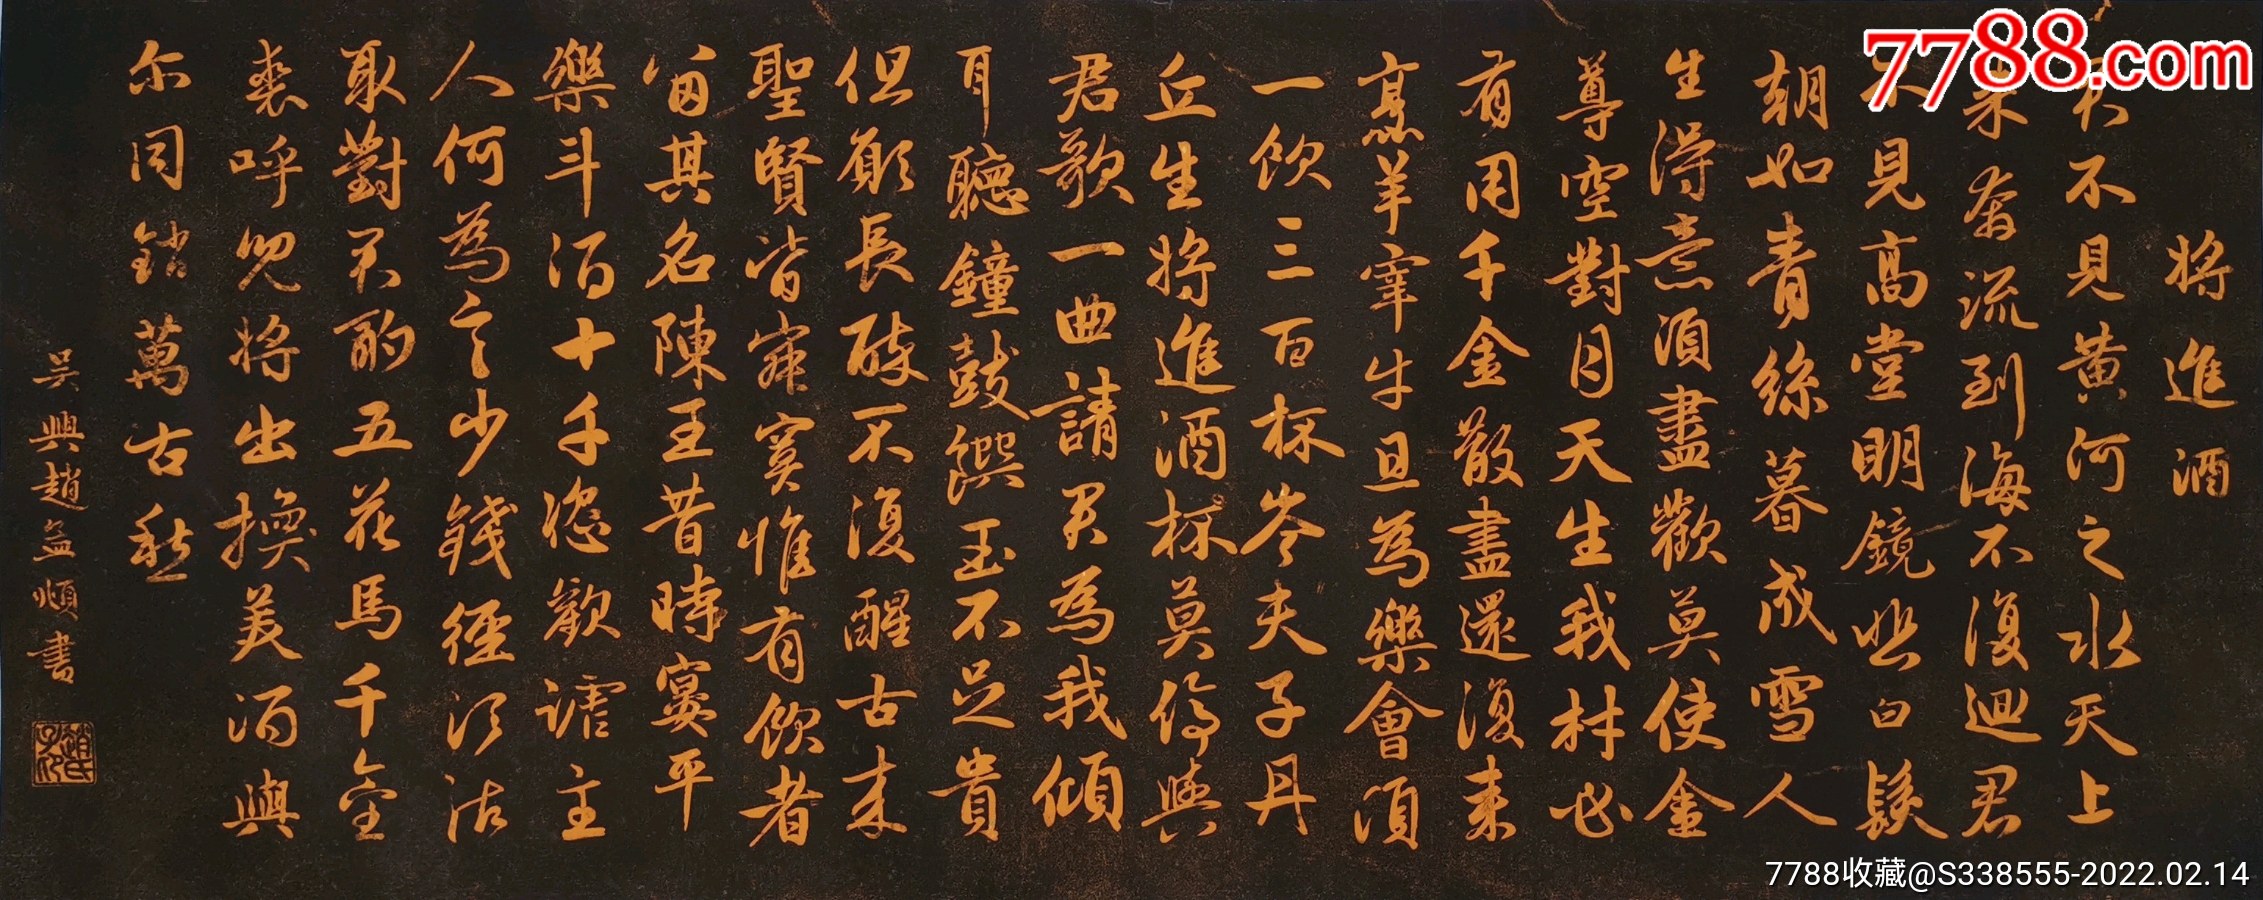 將進酒
君不見黃河之水天上
來奔流到海不復迴君
不見高堂明鏡悲白髮
朝如青絲暮成雪人
生得意須盡歡莫使金
尊空對月天生我材必
有用千金散盡還復來
烹羊宰牛且為樂會須
一飲三百杯岑夫子丹
丘生將進酒杯莫停與
君歌一曲請君為我傾
耳聽鐘鼓饌玉不足貴
但願長醉不復醒古來
聖賢皆寂寞惟有飲者
留其名陳王昔時宴平
樂斗酒十千恣歡謔主
人何為言少錢徑須沽
取對君酌五花馬千金
裘呼兒將出換美酒與
尔同銷萬古愁
吳興趙孟頫書
趙氏子昂
7788.com
7788收藏@S338555-2022.02.14